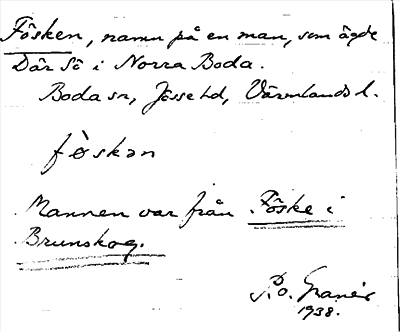 Fösken, namn på en man, som ägde
Där Sö i Norra Boda.
Boda sn, Jösse hd, Värmlands l.
fö̀skən
Mannen var från Föske i
Brunskog.
P. O. Granér
1938.